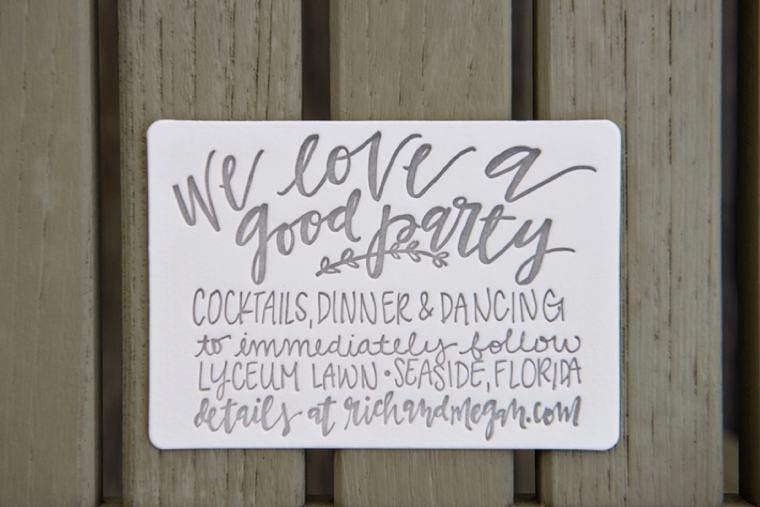 We love a
good party
COCKTAILS, DINNER & DANCING
to immediately follow
LYCEUM LAWN • SEASIDE, FLORIDA
details at richandmegan.com